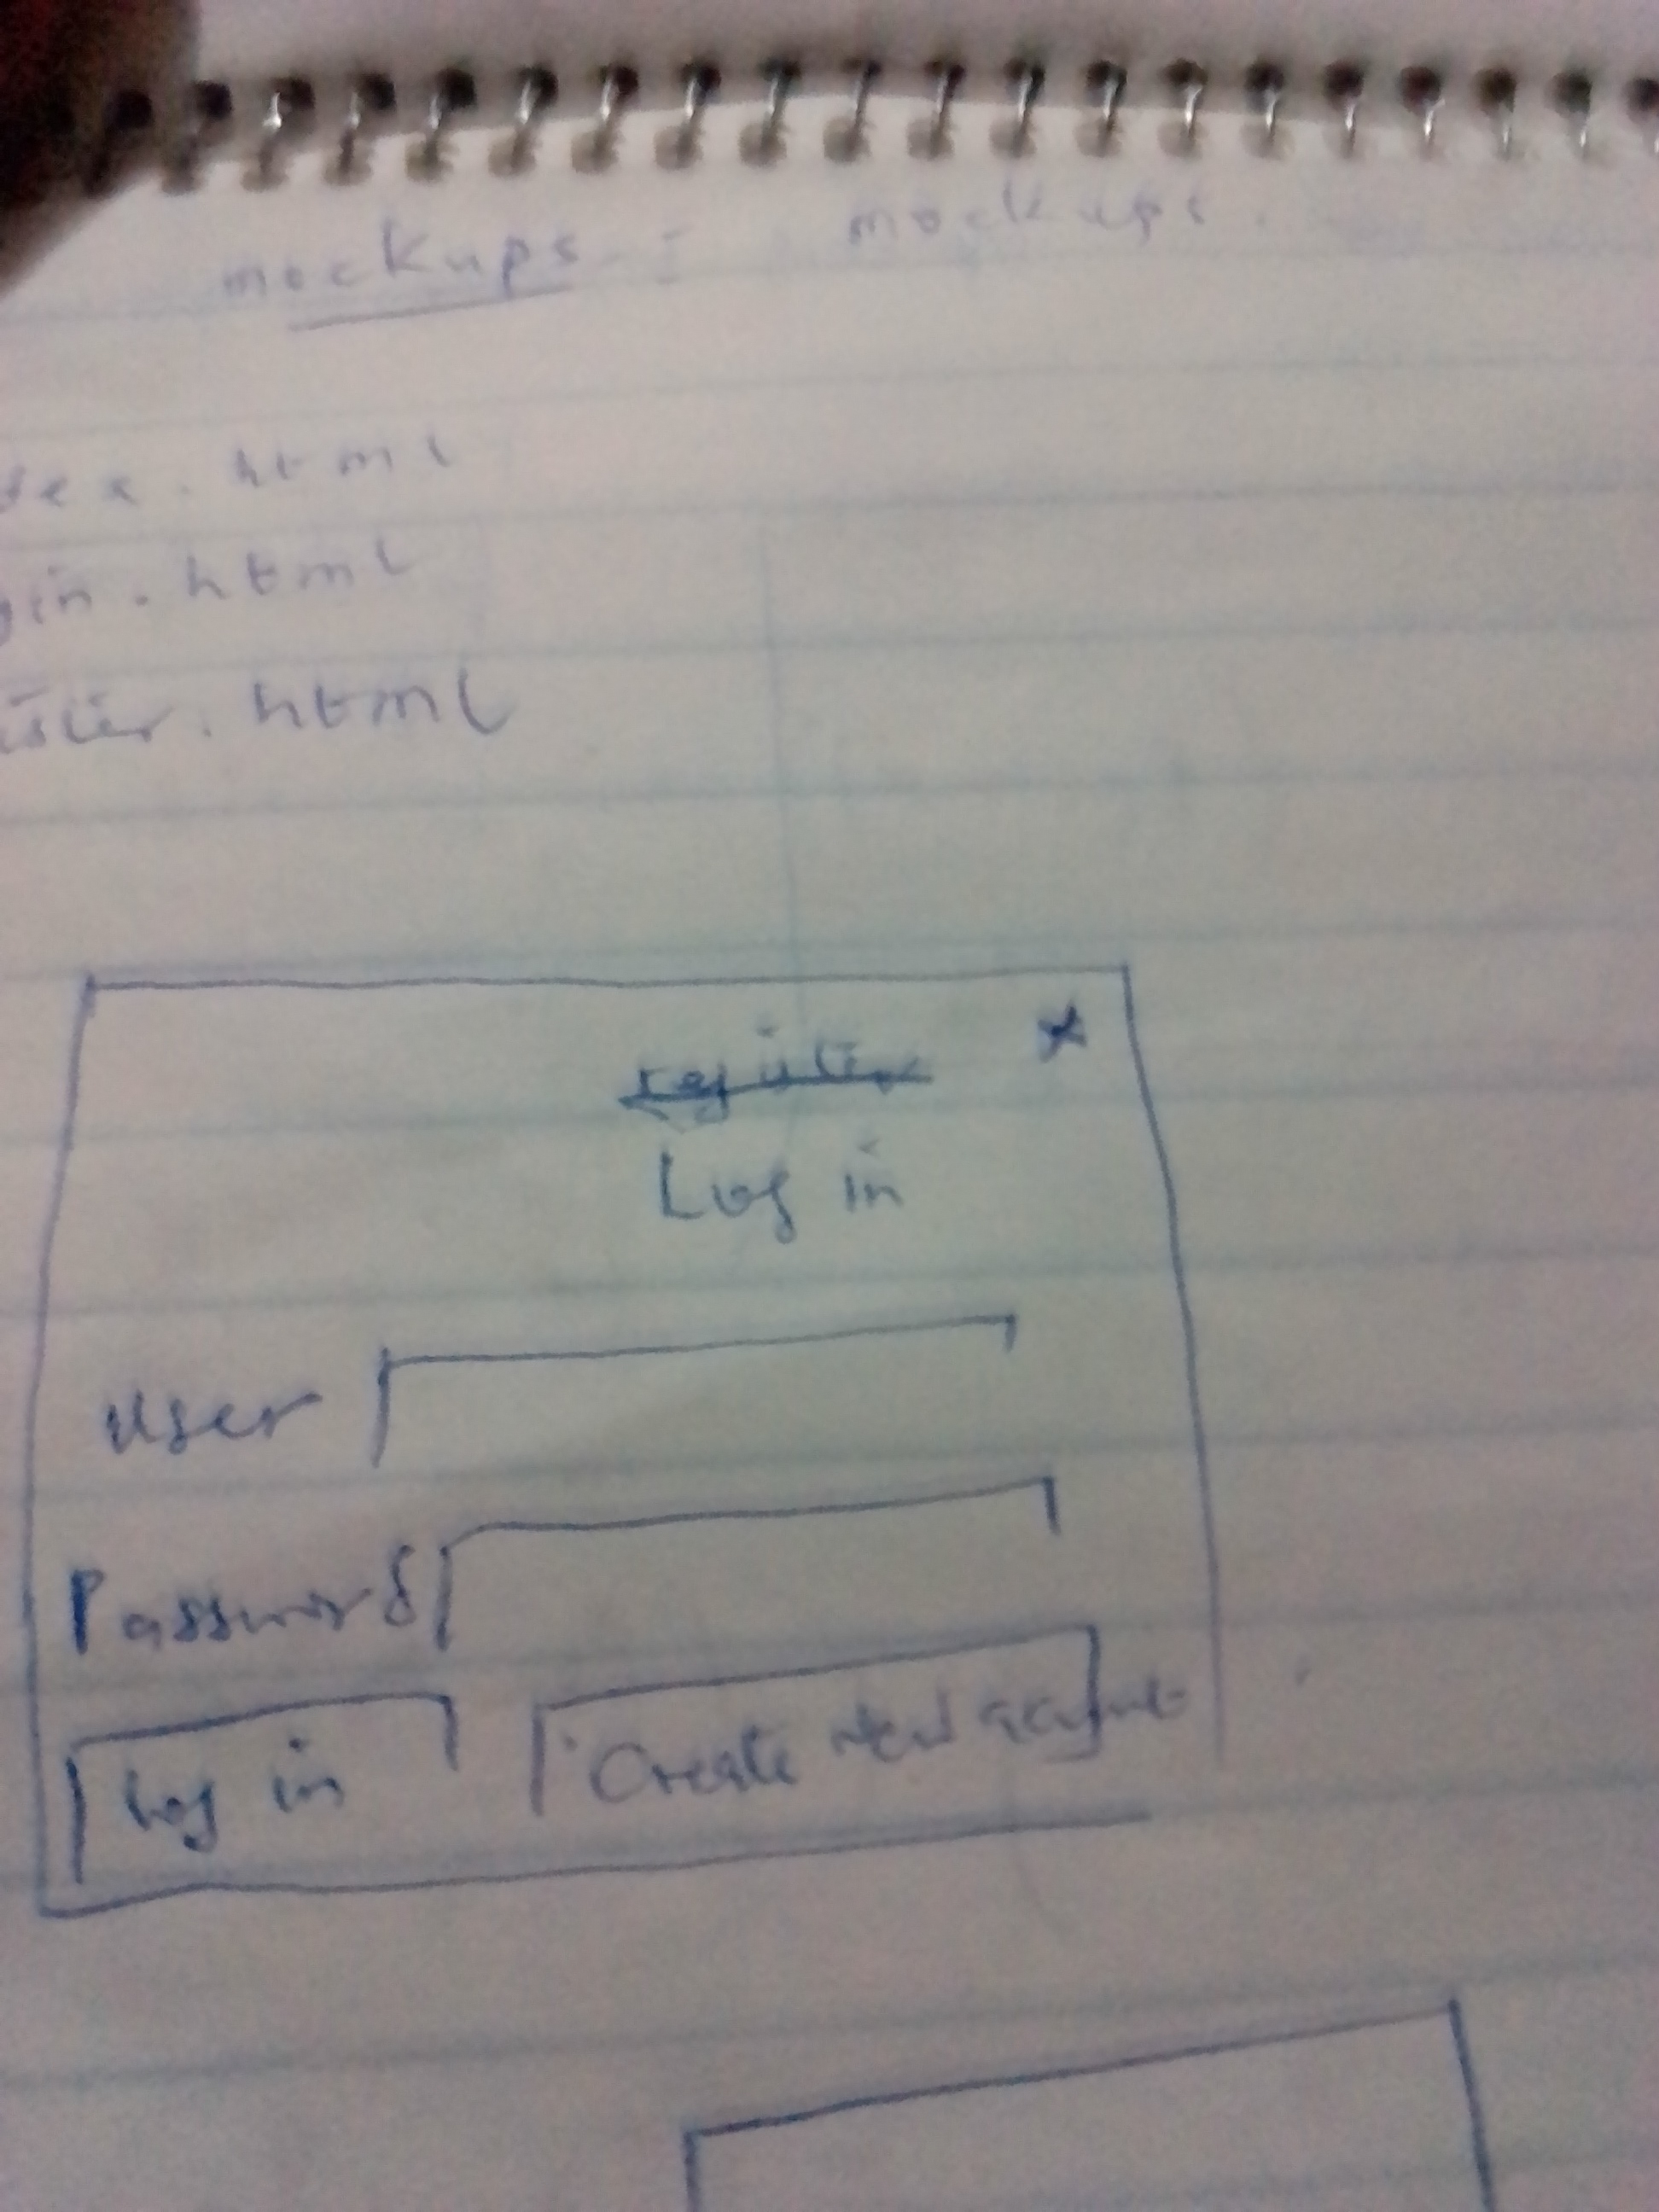 mockups - : mockups.
dex.html
gin.html
ister.html
register x
Log in
User
Password
Log in Create new